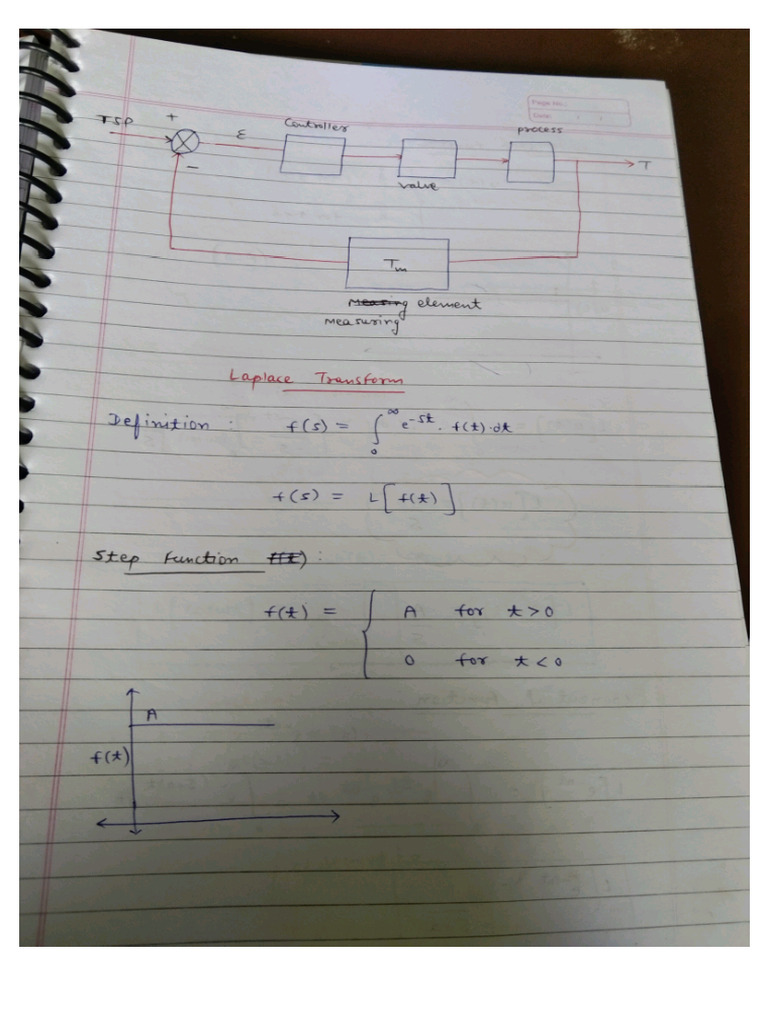 Page No.:
Date: / /
TSP + ε Controller process
− valve T
Tm
Measing element
Measuring
Laplace Transform
Definition : f(s) = ∫₀^∞ e^-st . f(t).dt
f(s) = L[f(t)]
Step Function f(t) :
f(t) = { A for t>0
0 for t<0
A
f(t)